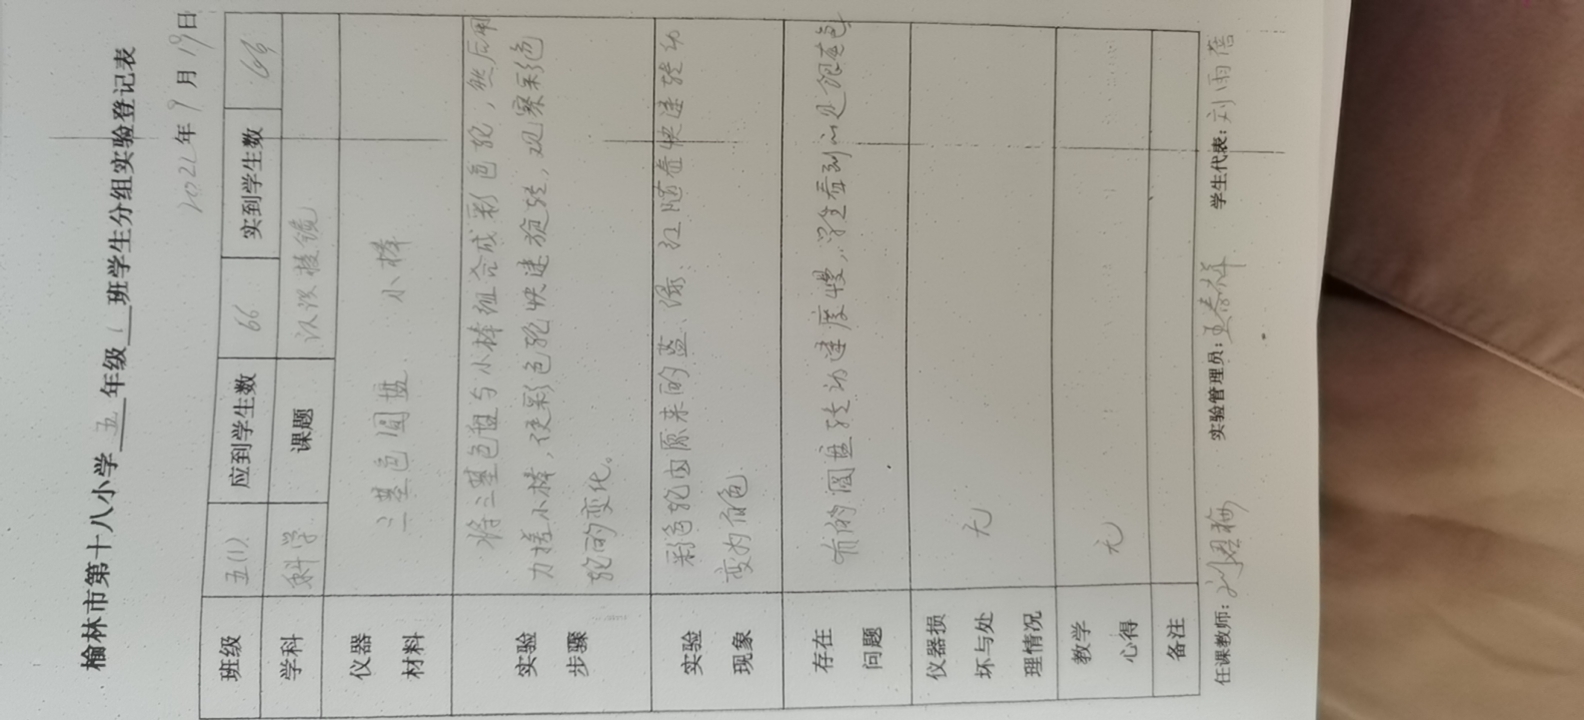 榆林市第十八小学 五 年级 1 班学生分组实验登记表
2022年 9 月 19日
班级 五(1) 应到学生数 66 实到学生数
学科 科学 课题 认识棱镜
仪器材料 三基色圆盘 小棒
实验步骤 将三基色盘与小棒组合成彩色轮，然后用
力搓小棒，使彩色轮快速旋转，观察彩色
轮的变化。
实验现象 彩色轮由原来的蓝、绿、红随着快速转动
变为白色
存在问题 有的圆盘转动速度慢，学生看到
仪器损坏与处理情况 无
教学心得 无
备注
任课教师： 实验管理员： 学生代表：刘雨